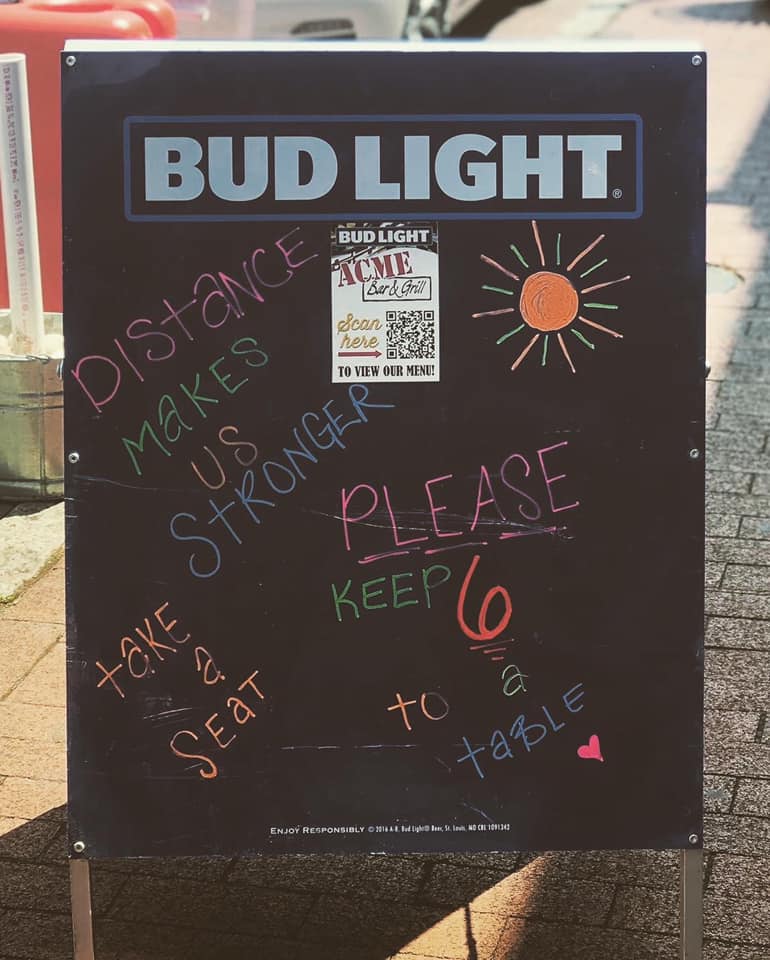 BUD LIGHT®
BUD LIGHT
ACME
Bar & Grill
Scan
here
TO VIEW OUR MENU!
DIStaNCE
MaKES
US
StRONGER
PLEASE
KEEP 6
to a
taBLE
taKE
a
SEat
ENJOY RESPONSIBLY © 2016 A-B, Bud Light® Beer, St. Louis, MO CBL 1091342